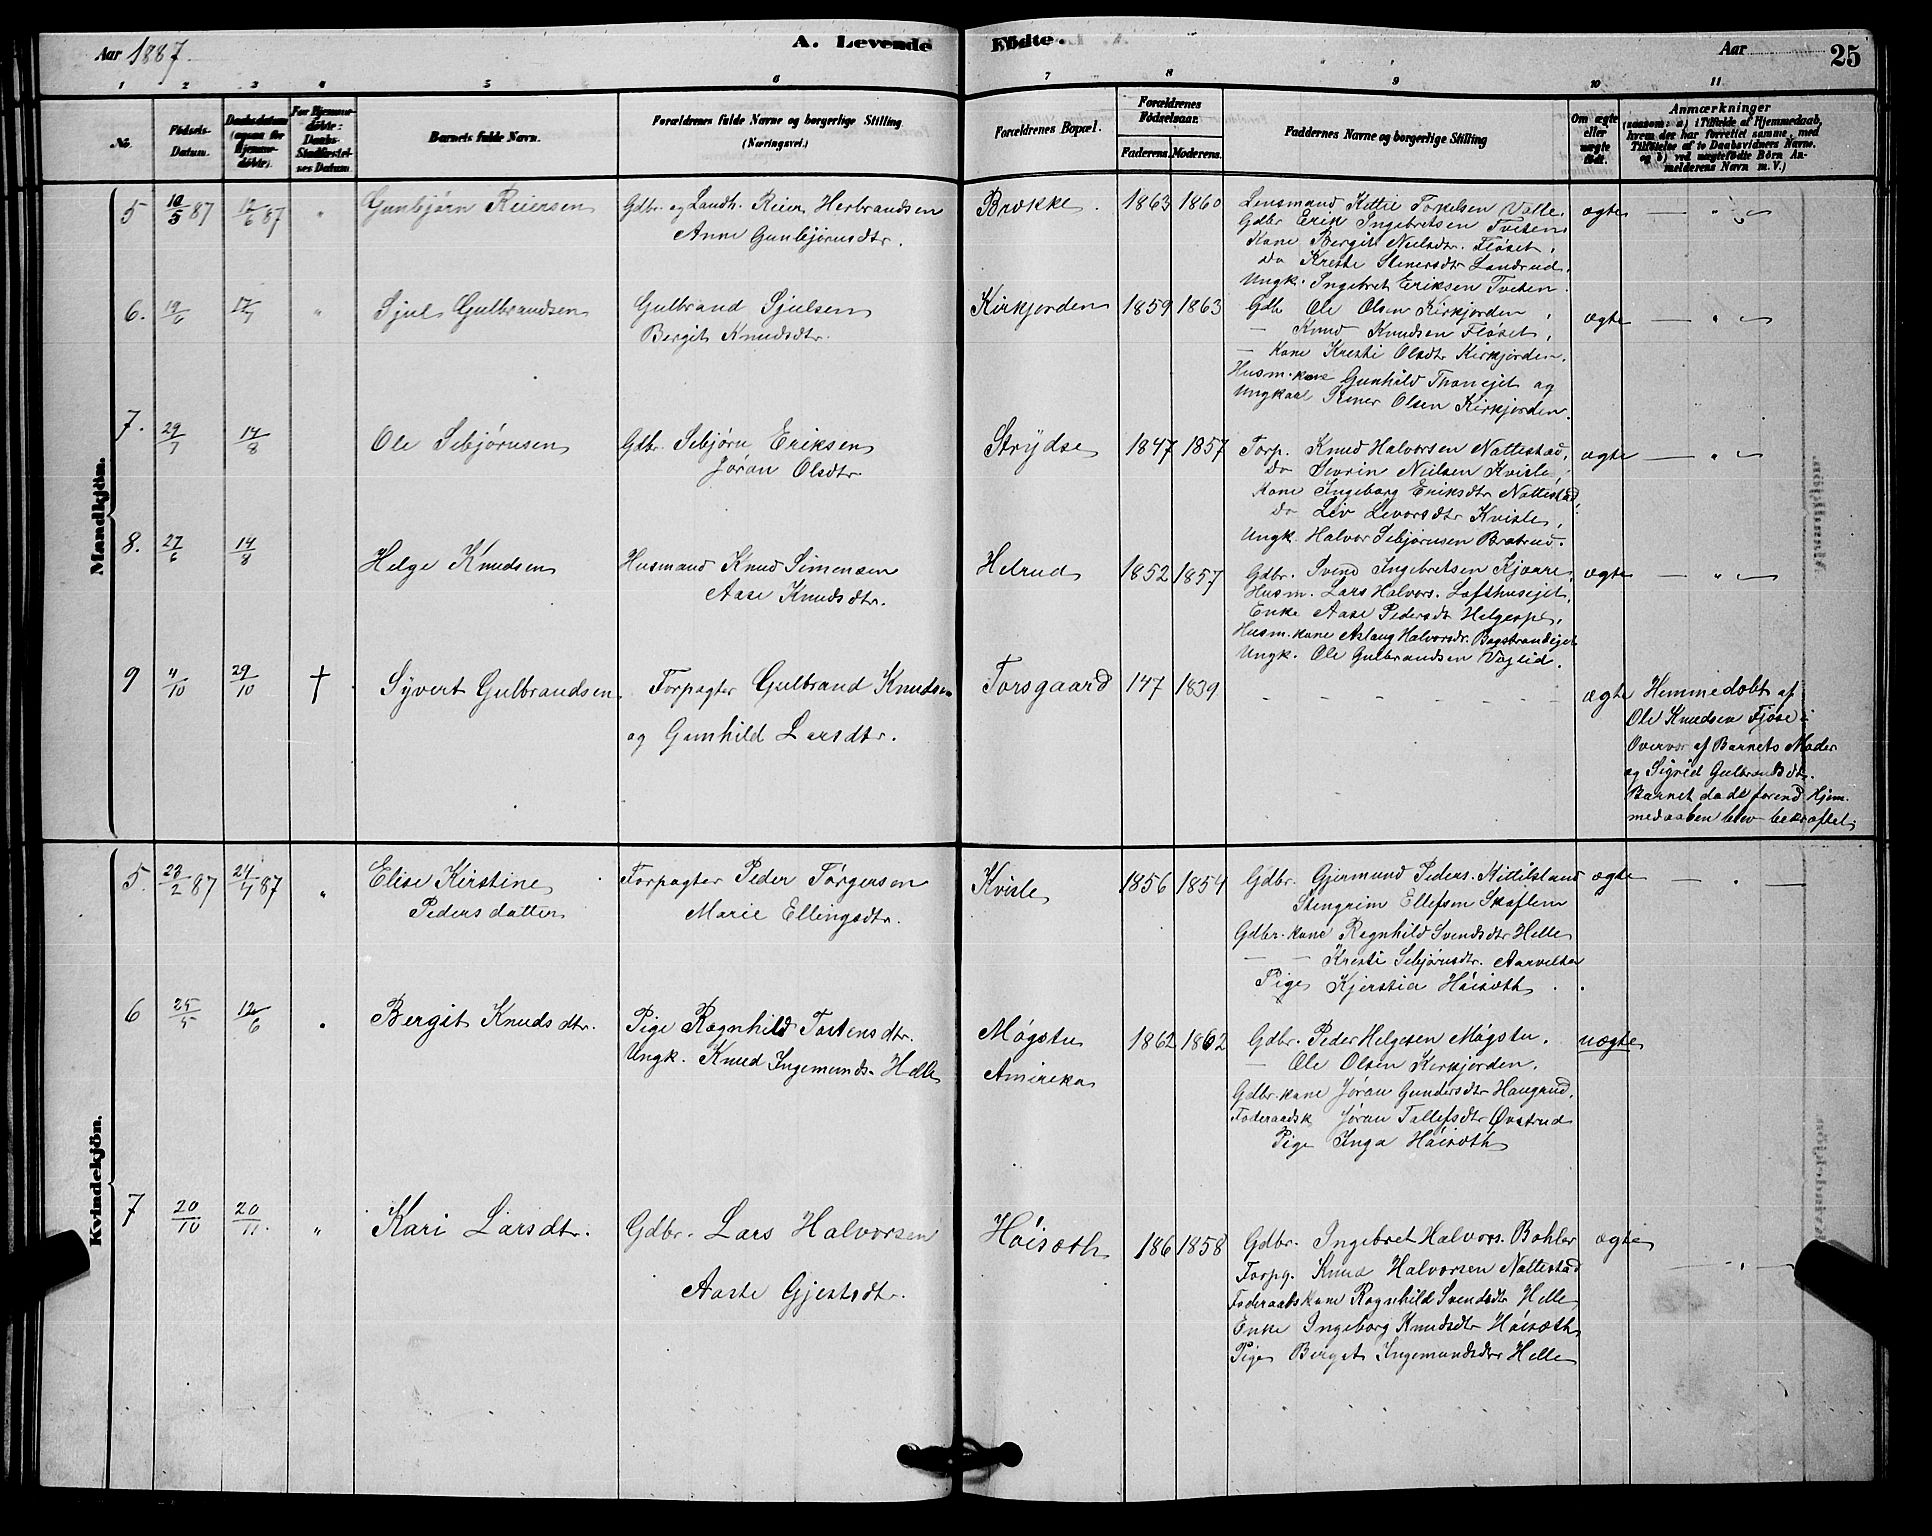 Aar 1887
A. Levende Födte.
Aar
25
1 2 3 4 5 6 7 8 9 10 11
No.
Födsels-
Datum.
Daabsdatum
(ogsaa for
Hjemme-
döbte).
For Hjemme-
döbte:
Daabs-
Stadfæstel-
ses Datum.
Barnets fulde Navn.
Forældrenes fulde Navne og borgerlige Stilling
(Næringsvei.)
Forældrenes Bopæl.
Forældrenes
Födselsaar.
Faderens. Moderens.
Faddernes Navne og borgerlige Stilling
Om ægte
eller
uægte
født.
Anmærkninger
(saasom: a) i Tilfælde af Hjemmedaab,
hvem der har forrettet samme, med
Tilføielse af to Daabsvidners Navne,
og b) ved uægtefödte Börn An-
melderens Navn m. V.)
Mandkjön.
5 10/5 87 12/6 87 " Gunbjørn Reiersen
Gdbr. og Landh. Reier Herbrandsen
Anne Gunbjørnsdtr.
Brokke. 1863 1860
Lensmand Kittil Torkelsen Valle
Gdbr Erik Ingebretsen Tveten
Kone Bergit Nielsdtr. Fløset,
do Kreste Stenersdtr Landrud,
Ungk. Ingebret Eriksen Tveten.
ægte — " —
6. 19/6 17/7 " Sjul Gulbrandsen
Gulbrand Sjulsen
Bergit Knudsdtr.
Kirkjorden 1859 1863
Gdb Ole Olsen Kirkjorden,
— Knud Knudsen Fløset,
— Kone Kresti Olsdtr Kirkjorden.
Husm. kone Gunhild Thoneiet og
Ungkarl Stener Olsen Kirkjorden.
ægte — " —
7. 29/7 14/8 Ole Sebjørnsen
Gdbr. Sebjørn Eriksen
Jøran Olsdtr
Strydse 1847 1857
Forp. Knud Halvorsen Nattestad,
do Sevrin Nielsen Kvisle,
Kone Ingeborg Eriksdtr Nattestad,
do Liv Levorsdtr Kvisle,
Ungk. Halvor Sebjørnsen Bratrud.
ægte — " —
8. 27/6 14/8 Helge Knudsen
Husmand Knud Simensen
Aase Knudsdtr.
Helrud 1852 1857
Gdbr. Svend Ingebretsen Kjørre,
Husm. Lars Halvors. Lofthuseiet,
Enke Aase Pedersdtr Helgespl.,
Husm. kone Aslaug Halvorsdr. Bagstrandeiet
Ungk. Ole Gulbrandsen Vaglid.
ægte — " —
9 4/10 29/10 † Syvert Gulbrandsen
Forpagter Gulbrand Knudsen
og Gunhild Larsdtr.
Torsgaard 147 1839
— — — — — —
ægte
Hemmedøbt af
Ole Knudsen Fjøse i
Overvær af Barnets Moder
og Sigrid Gulbrandsdtr.
Barnet døde forend Hjem-
medaaben blev bekræftet.
Kvindekjön.
5. 28/2 87 24/4 87 " Elise Kirstine
Pedersdatter
Forpagter Peder Torgersen
Marie Ellingsdtr.
Kvisle 1856 1854
Gdbr. Gjermund Peders. Kittilsland
Stengrim Ellefsen Skaflem
Gdbr. kone Ragnhild Svendsdtr Helle
— — Kresti Sebjørnsdtr. Aarvelta
Pige Kjerstia Høisæth.
ægte — " —
6 25/5 12/6 " Bergit Knudsdtr.
Pige Ragnhild Tostensdtr.
Ungk. Knud Ingemunds. Helle
Møgstu
Amireka
1862 1862
Gdbr. Peder Helgesen Møgstu.
— Ole Olsen Kirkjorden.
Gdbr. kone Jøran Gundersdtr Haugrud,
Foderaadsk Jøran Tollefsdtr Øvstrud
Pige Inga Høisæth
uægte
7 20/10 20/11. " Kari Larsdtr.
Gdbr. Lars Halvorsen
Aaste Gjestsdtr.
Høisæth 186 1858
Gdbr. Ingebret Halvors. Bohler
Forpg. Knud Halvorsen Nattestad
Foderaadskone Ragnhild Svendsdtr Helle
Enke Ingeborg Knudsdtr Høisæth
Pige Bergit Ingemundsdtr Helle
ægte — " —